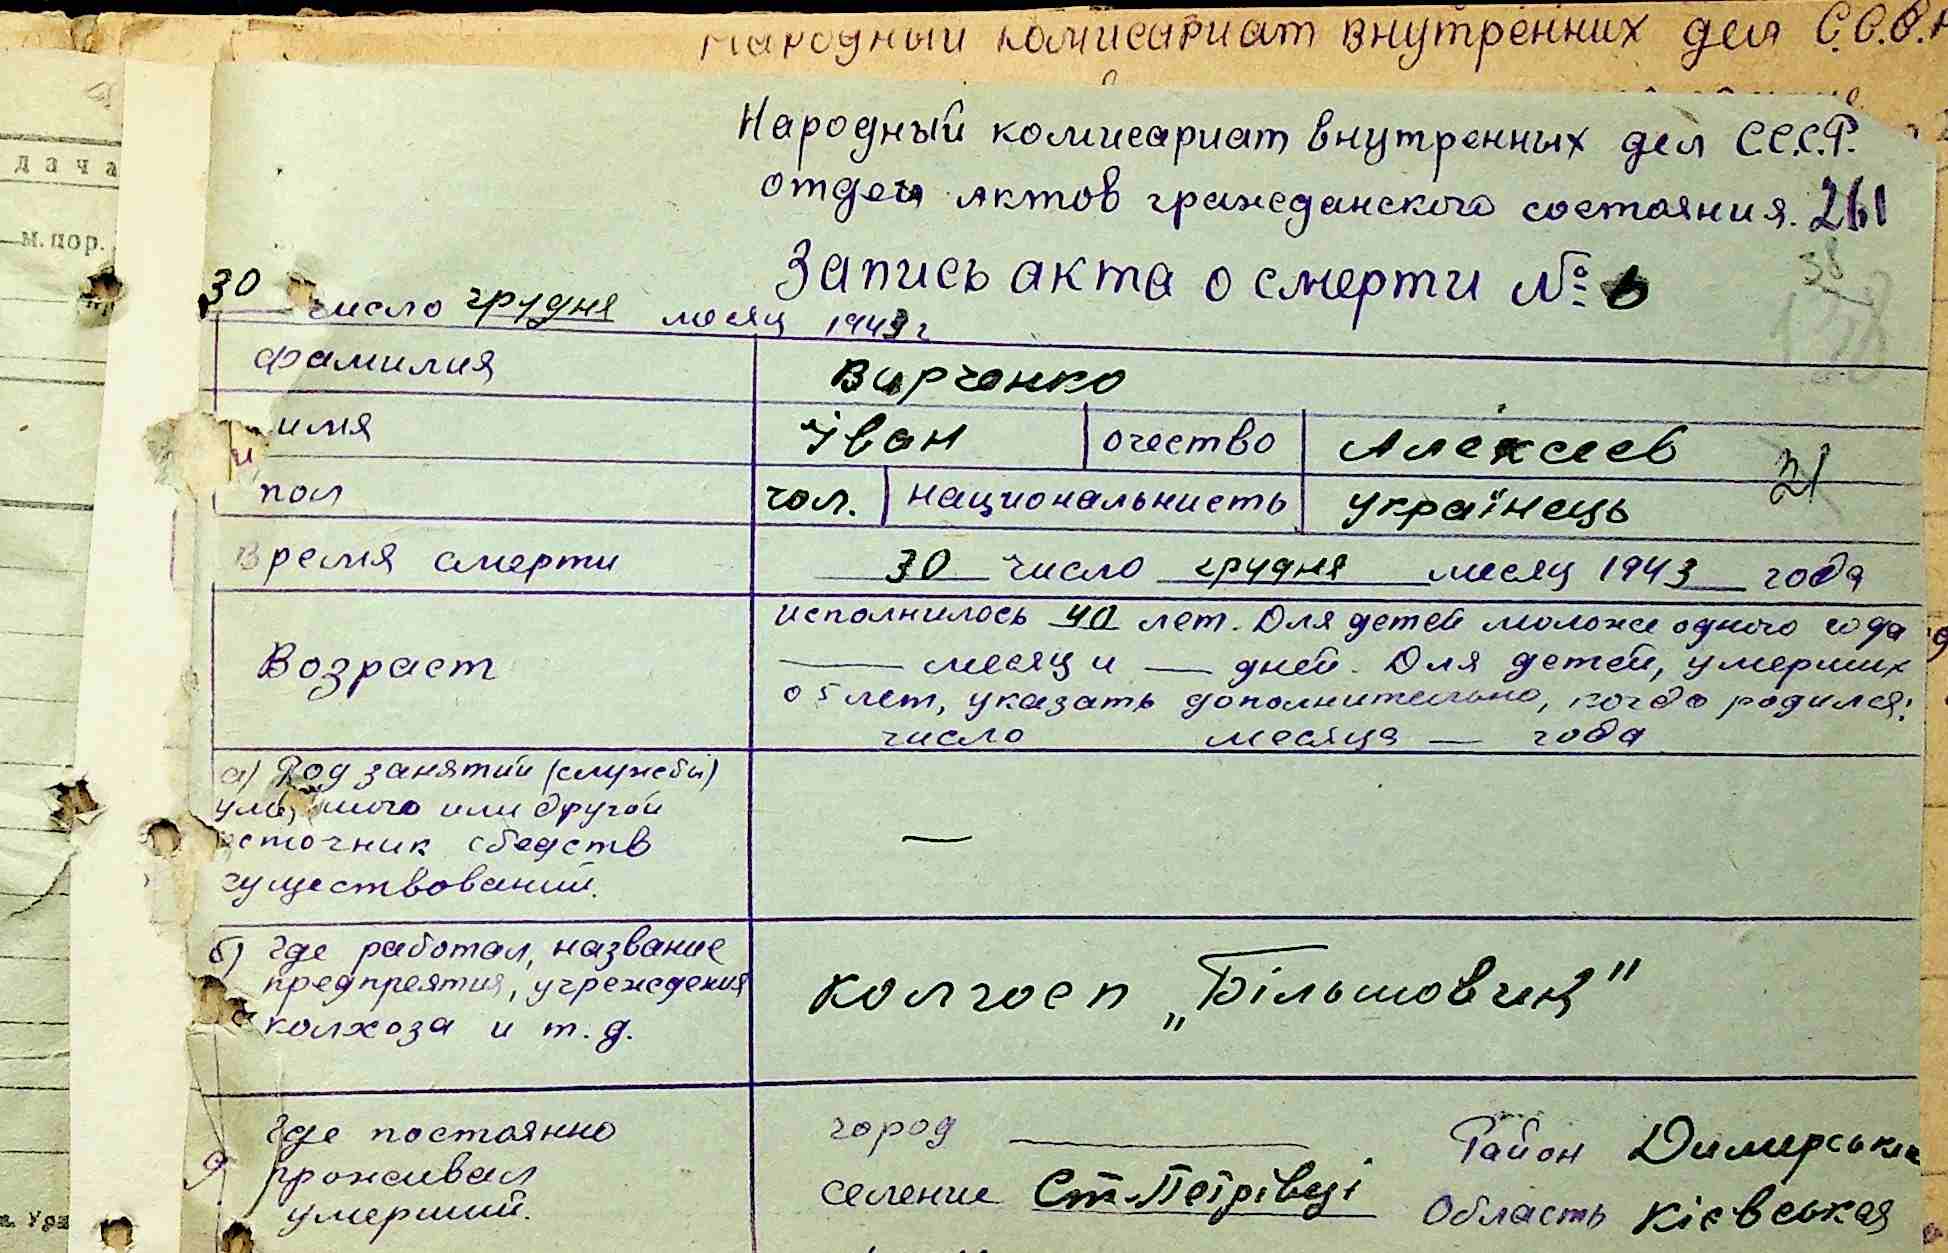 Народный комисариат внутренних дел С.С.С.
дача
м. пор.
Народный комисариат внутренных дел С.С.С.Р.
отдел актов гражданского состояния. 261
Запись акта о смерти № 6
38
30 число грудня месяц 1943 г
фамилия Вирченко
имя Іван очество Алексеев
21
пол чол. национальнисть українець
Время смерти 30 число грудня месяц 1943 года
Возраст
исполнилось 40 лет. Для детей моложе одного года
— месяц и — дней. Для детей, умерших
о 5 лет, указать дополнительно, когда родился:
число месяца — года
а) Род занятий (службы)
или другой
источник сбедств
существований.
—
б) где работал, название
предпреятия, учреждения
колхоза и т. д.
колгосп „Більшовик"
где постоянно
проживал
умерший.
город — Район Димерський
селение Ст-Петрівці Область Кієвськая